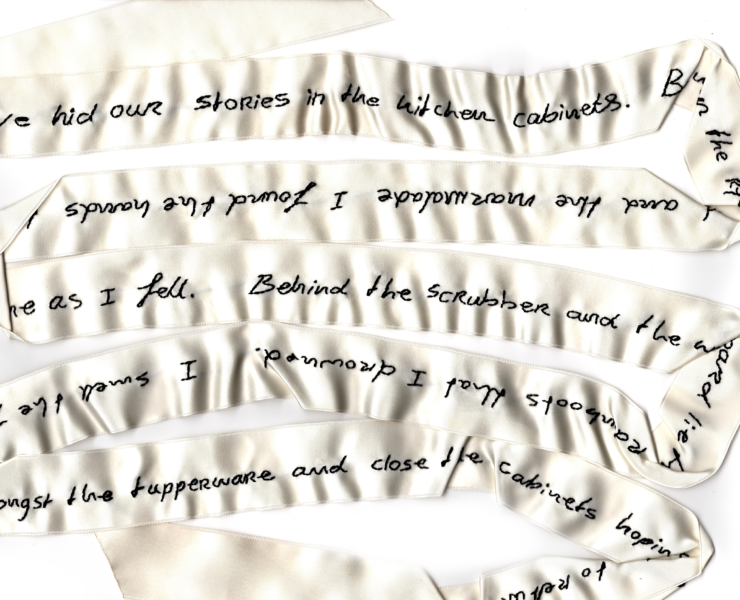 ve hid our stories in the kitchen cabinets. B
in the
and the marmalade I found the hands
as I fell. Behind the scrubber and the
rainboots that I drowned. I smell the
ongst the tupperware and close the cabinets hopin
to retu